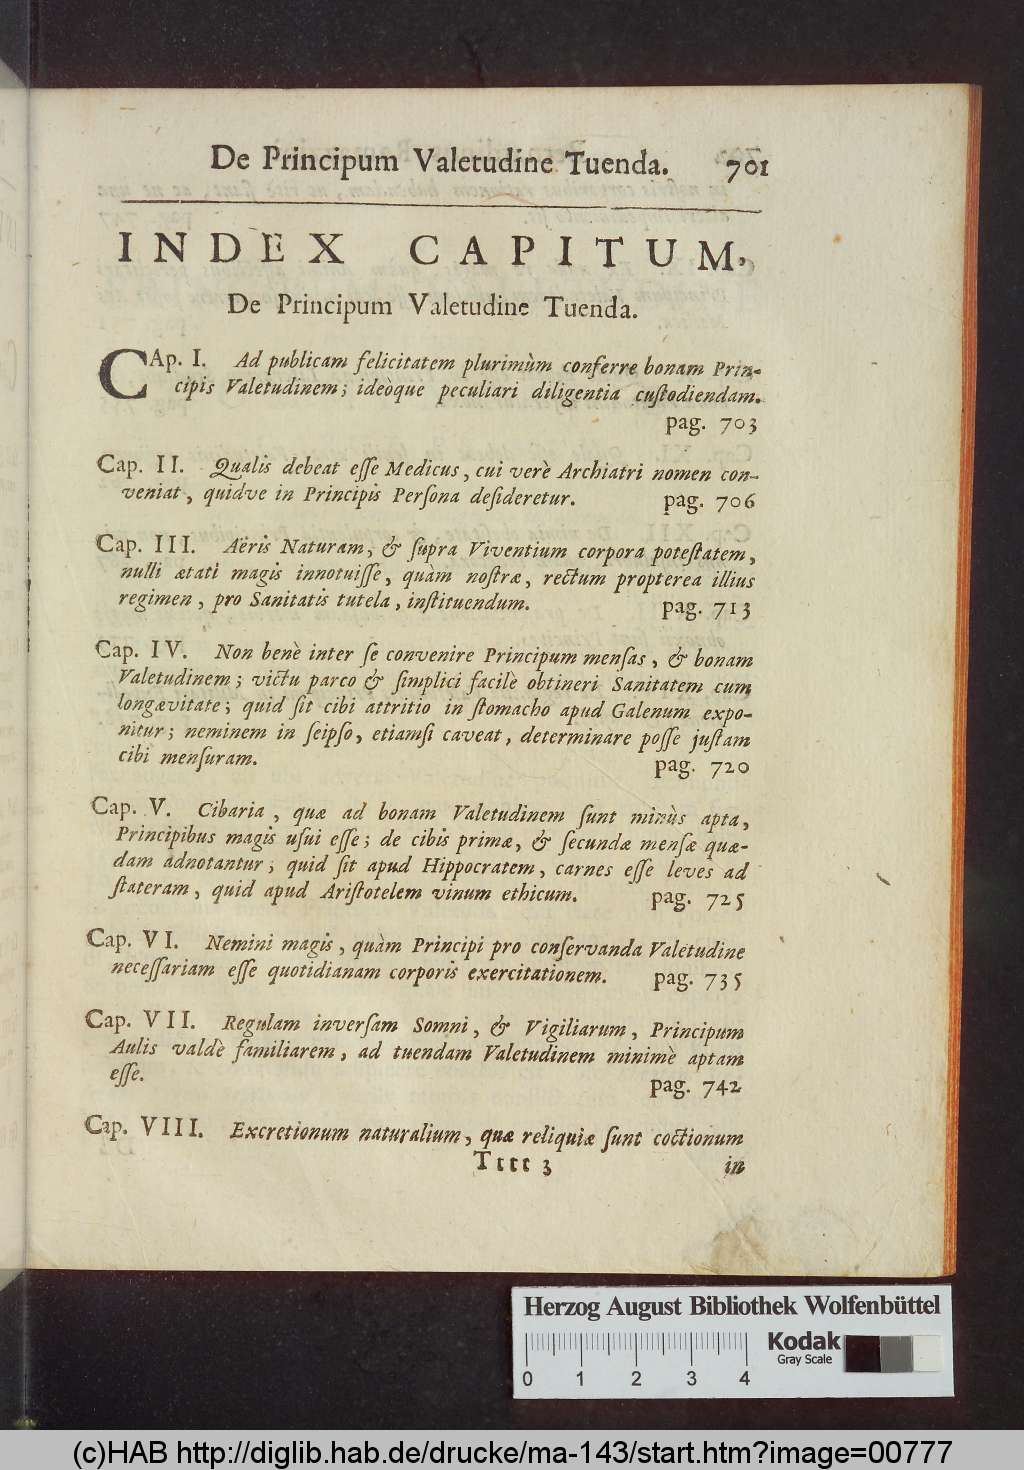 De Principum Valetudine Tuenda. 701
INDEX CAPITUM,
De Principum Valetudine Tuenda.
CAp. I. Ad publicam felicitatem plurimùm conferre bonam Prin-
cipis Valetudinem; ideòque peculiari diligentia cuſtodiendam.
pag. 703
Cap. II. Qualis debeat eſſe Medicus, cui verè Archiatri nomen con-
veniat, quidve in Principis Perſona deſideretur. pag. 706
Cap. III. Aëris Naturam, & ſupra Viventium corpora poteſtatem,
nulli ætati magis innotuiſſe, quàm noſtræ, rectum propterea illius
regimen, pro Sanitatis tutela, inſtituendum. pag. 713
Cap. IV. Non benè inter ſe convenire Principum menſas, & bonam
Valetudinem; victu parco & ſimplici facilè obtineri Sanitatem cum
longævitate; quid ſit cibi attritio in ſtomacho apud Galenum expo-
nitur; neminem in ſeipſo, etiamſi caveat, determinare poſſe juſtam
cibi menſuram. pag. 720
Cap. V. Cibaria, quæ ad bonam Valetudinem ſunt minùs apta,
Principibus magis uſui eſſe; de cibis primæ, & ſecundæ menſæ quæ-
dam adnotantur; quid ſit apud Hippocratem, carnes eſſe leves ad
ſtateram, quid apud Ariſtotelem vinum ethicum. pag. 725
Cap. VI. Nemini magis, quàm Principi pro conſervanda Valetudine
neceſſariam eſſe quotidianam corporis exercitationem. pag. 735
Cap. VII. Regulam inverſam Somni, & Vigiliarum, Principum
Aulis valdè familiarem, ad tuendam Valetudinem minimè aptam
eſſe. pag. 742
Cap. VIII. Excretionum naturalium, quæ reliquiæ ſunt coctionum
Tttt 3 in
Herzog August Bibliothek Wolfenbüttel
Kodak
Gray Scale
0 1 2 3 4
(c)HAB http://diglib.hab.de/drucke/ma-143/start.htm?image=00777